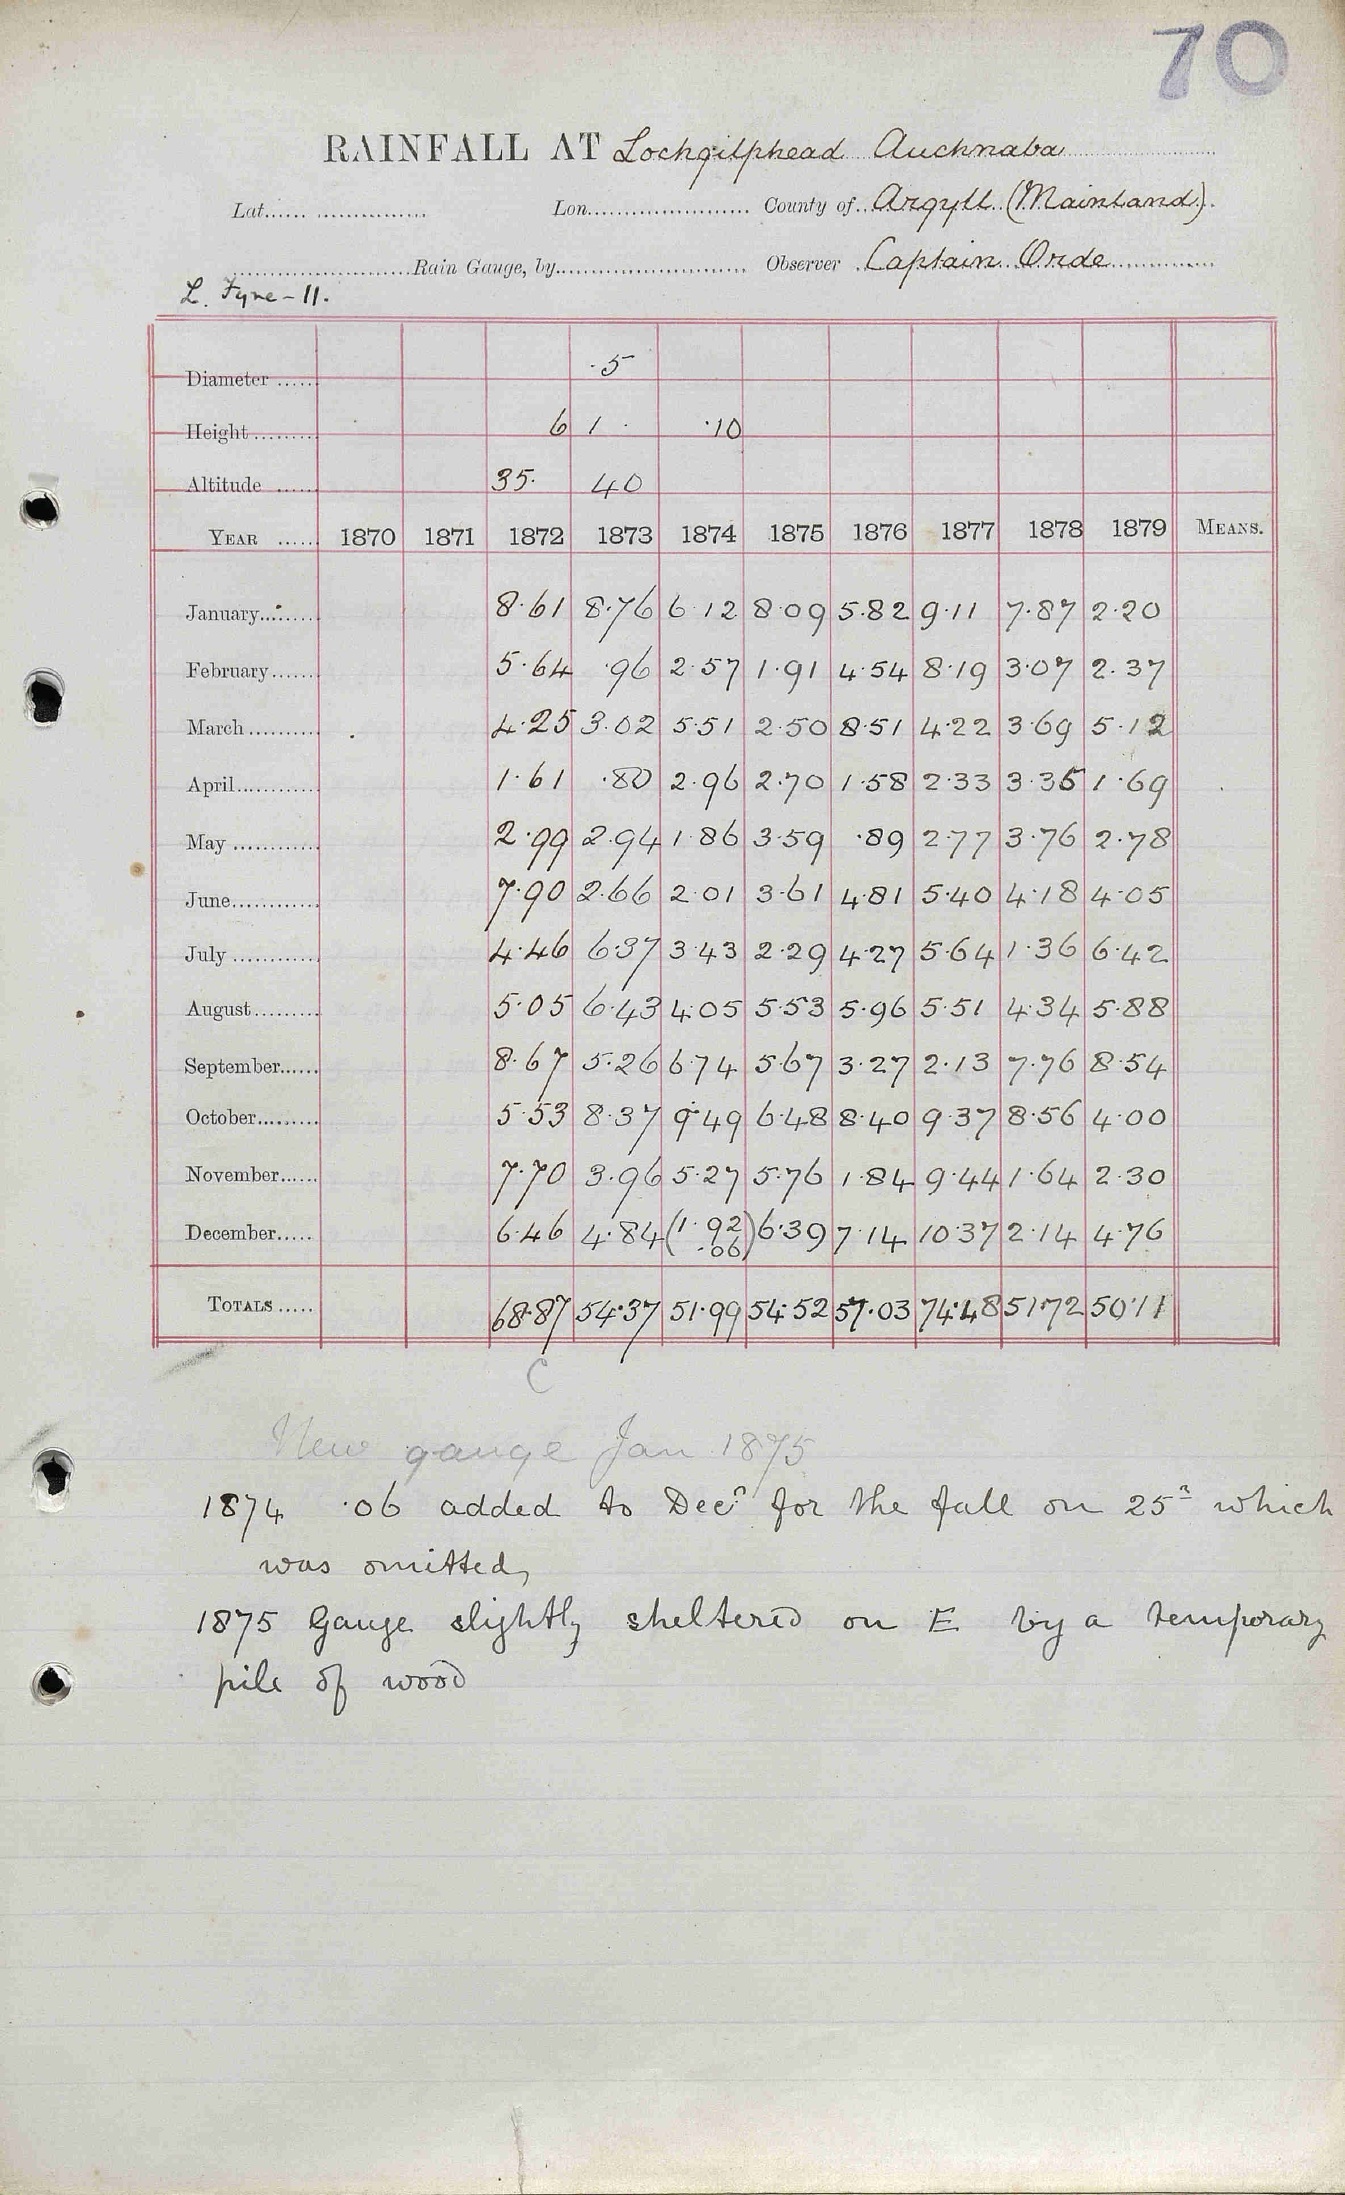 70
RAINFALL AT Lochgilphead Auchnaba
Lat...... ............... Lon....................... County of..Argyll (Mainland)
.........................Rain Gauge, by.......................... Observer ..Captain Orde
L. Fyne - 11.
Diameter ...... ·5
Height ......... 6 1 · ·10
Altitude ...... 35· 40
YEAR ...... 1870 1871 1872 1873 1874 1875 1876 1877 1878 1879 MEANS.
January......... 8·61 8·76 6·12 8·09 5·82 9·11 7·87 2·20
February....... 5·64 ·96 2·57 1·91 4·54 8·19 3·07 2·37
March .......... 4·25 3·02 5·51 2·50 8·51 4·22 3·69 5·12
April............ 1·61 ·80 2·96 2·70 1·58 2·33 3·35 1·69
May ............ 2·99 2·94 1·86 3·59 ·89 2·77 3·76 2·78
June............ 7·90 2·66 2·01 3·61 4·81 5·40 4·18 4·05
July ............ 4·46 6·37 3·43 2·29 4·27 5·64 1·36 6·42
August......... 5·05 6·43 4·05 5·53 5·96 5·51 4·34 5·88
September...... 8·67 5·26 6·74 5·67 3·27 2·13 7·76 8·54
October......... 5·53 8·37 9·49 6·48 8·40 9·37 8·56 4·00
November...... 7·70 3·96 5·27 5·76 1·84 9·44 1·64 2·30
December..... 6·46 4·84 (1·92 6·39 7·14 10·37 2·14 4·76
·06)
TOTALS ..... 68·87 54·37 51·99 54·52 57·03 74·48 51·72 50·11
C
New gauge Jan 1875
1874 ·06 added to Decr for the fall on 25th which
was omitted,
1875 Gauge slightly sheltered on E by a temporary
pile of wood